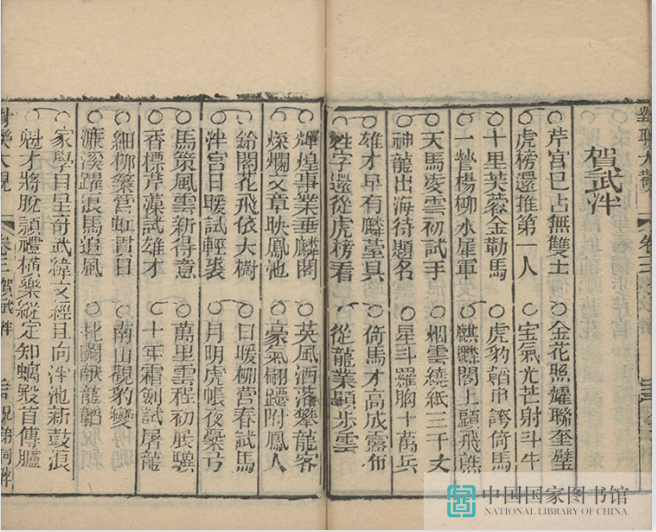 對聯大觀
卷三
賀武泮
芹宮已占無雙士
金花照耀聯奎璧
虎榜還推第一人
宝氣光芒射斗牛
十里芙蓉金勒馬
虎豹韜中誇倚馬
一營楊柳水星軍
麒麟閣上顕飛熊
天馬凌雲初試手
烟雲繞紙三千丈
神龍出海待題名
星斗羅胸十萬兵
雄才早有麟䑓具
倚馬才高成露布
姓字還從虎榜看
從龍業顕步雲
煇煌事業垂麟閣
英風洒落攀龍客
燦爛文章映鳳池
豪氣翩躚附鳳人
鈴閣花飛依大樹
日暖柳營春試馬
泮宮日暖試輕裘
月明虎帳夜彎弓
馬策風雲新得意
萬里雲程初展驥
香標芹藻試雄才
十年霜劍試屠龍
細柳築營虹貫日
南山觀豹變
濂溪躍浪馬追風
北闕献龍韜
家學自星奇武緯文經且向泮池新鼓浪
魁才將脫穎禮橫樂縱定知螭裝首傳臚
對聯大觀
卷三 賀武泮
中国国家图书馆
NATIONAL LIBRARY OF CHINA